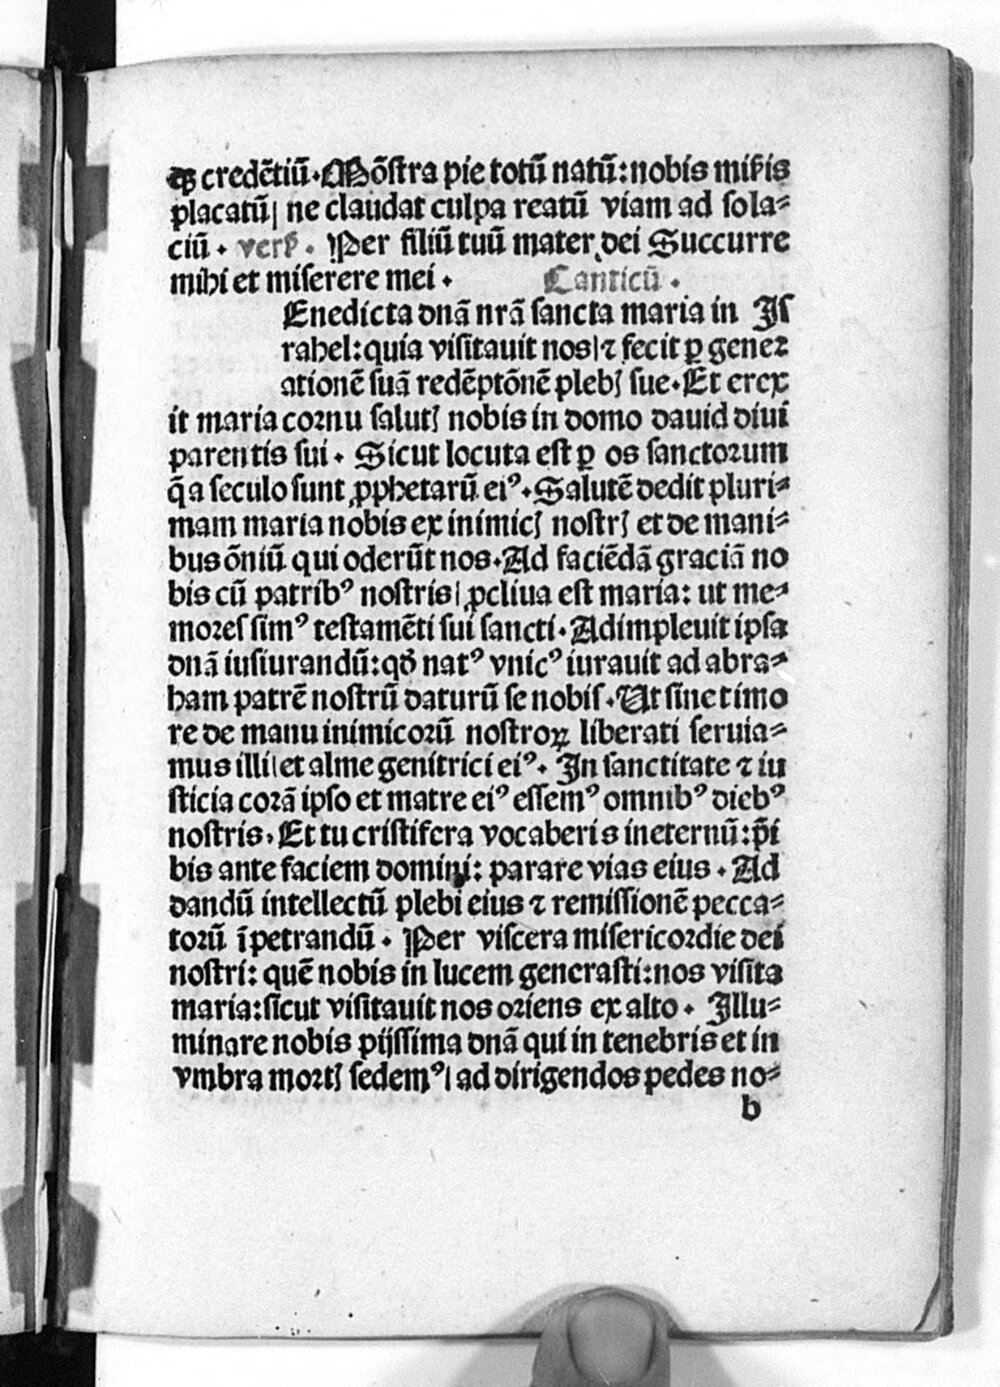 eꝫ credētiū. Mōstra pie totū natū: nobis miꝑis
placatū| ne claudat culpa reatū viam ad sola⸗
ciū. versꝰ. Per filiū tuū mater dei Succurre
mihi et miserere mei. Canticū.
Enedicta dnā nrā sancta maria in Is
rahel: quia visitauit nos| ⁊ fecit ꝑ gener
ationē suā redēptōnē plebꝭ sue. Et erex
it maria cornu salutꝭ nobis in domo dauid diui
parentis sui. Sicut locuta est ꝑ os sanctorum
q̄ a seculo sunt ꝓphetarū eiꝰ. Salutē dedit pluri⸗
mam maria nobis ex inimicꝭ nostrꝭ et de mani⸗
bus ōniū qui oderūt nos. Ad faciēdā graciā no
bis cū patribꝰ nostris| ꝓcliua est maria: ut me⸗
mores simꝰ testamēti sui sancti. Adimpleuit ipsa
dnā iusiurandū: qđ natꝰ vnicꝰ iurauit ad abra⸗
ham patrē nostrū daturū se nobis. Ut sine timo
re de manu inimicorū nostroꝝ liberati seruia⸗
mus illi| et alme genitrici eiꝰ. In sanctitate ⁊ iu
sticia corā ipso et matre eiꝰ essemꝰ omnibꝰ diebꝰ
nostris. Et tu cristifera vocaberis ineternū: p̄i
bis ante faciem domini: parare vias eius. Ad
dandū intellectū plebi eius ⁊ remissionē pecca⸗
torū īpetrandū. Per viscera misericordie dei
nostri: quē nobis in lucem generasti: nos visita
maria: sicut visitauit nos oriens ex alto. Illu⸗
minare nobis pijssima dnā qui in tenebris et in
vmbra mortꝭ sedemꝰ| ad dirigendos pedes no⸗
b